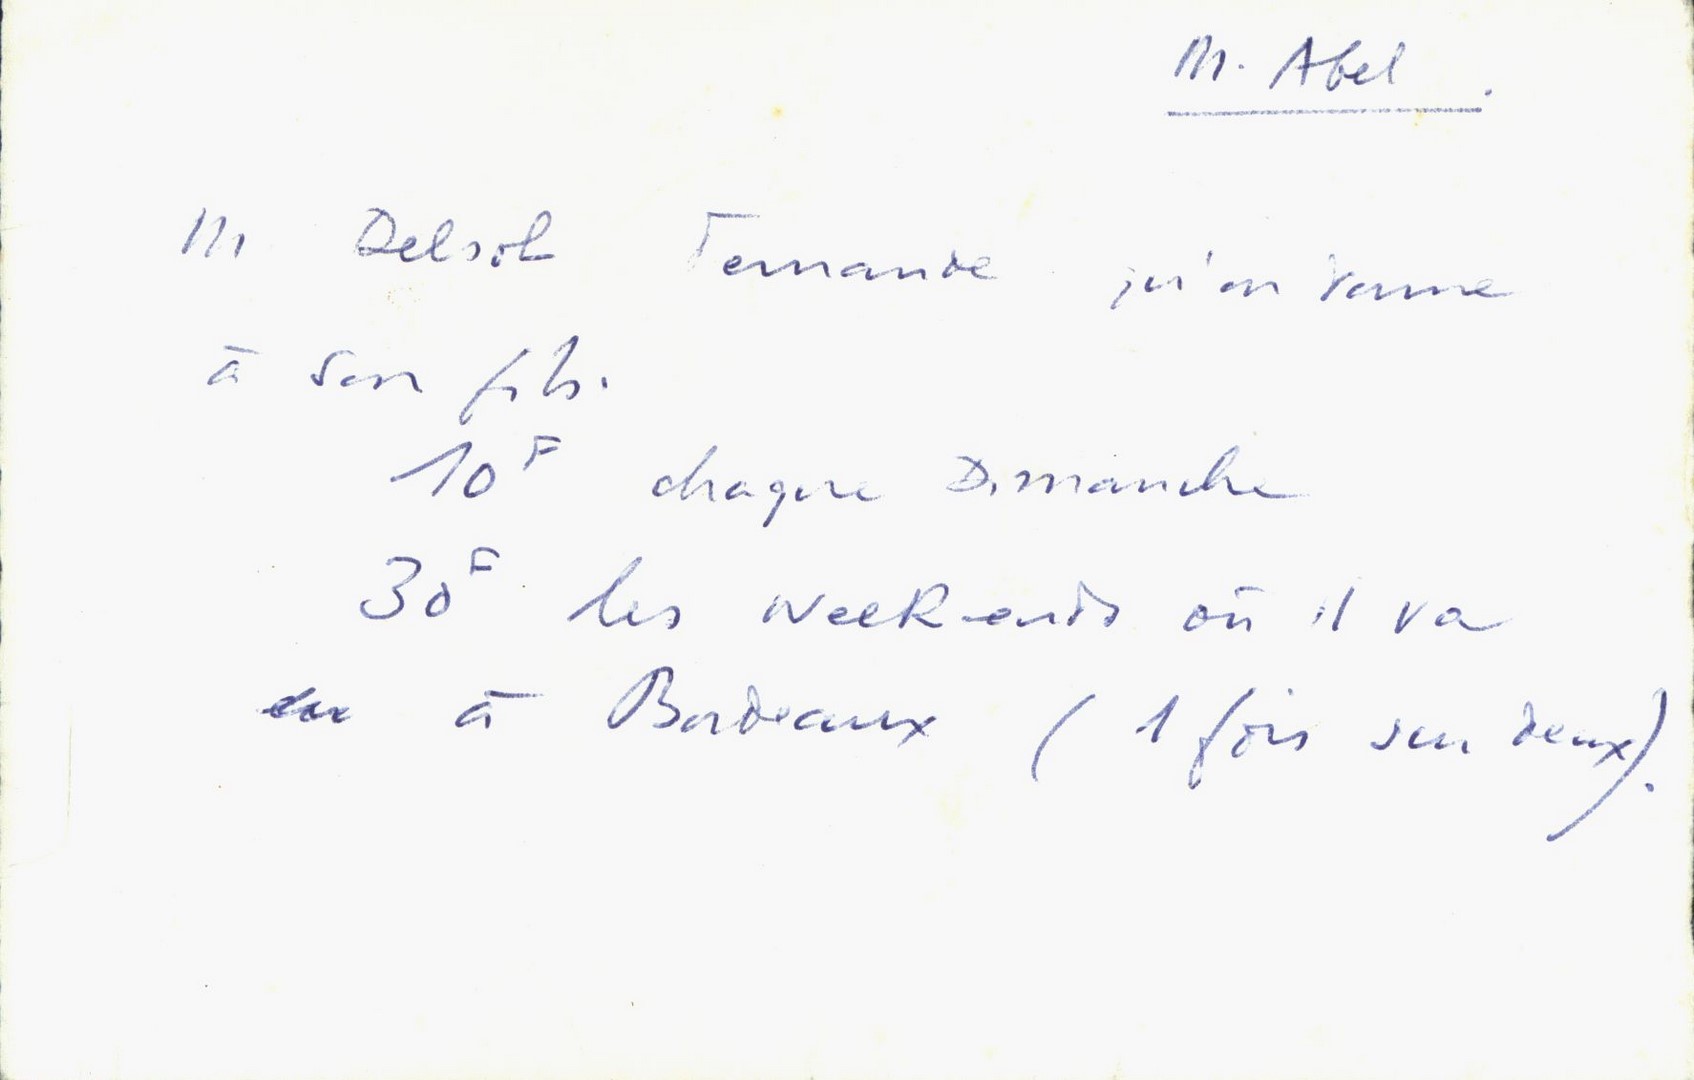 M. Abel.
M Delsol demande qu'on donne
à son fils.
10F chaque Dimanche
30F les week-ends où il va
à Bordeaux (1 fois sur deux).